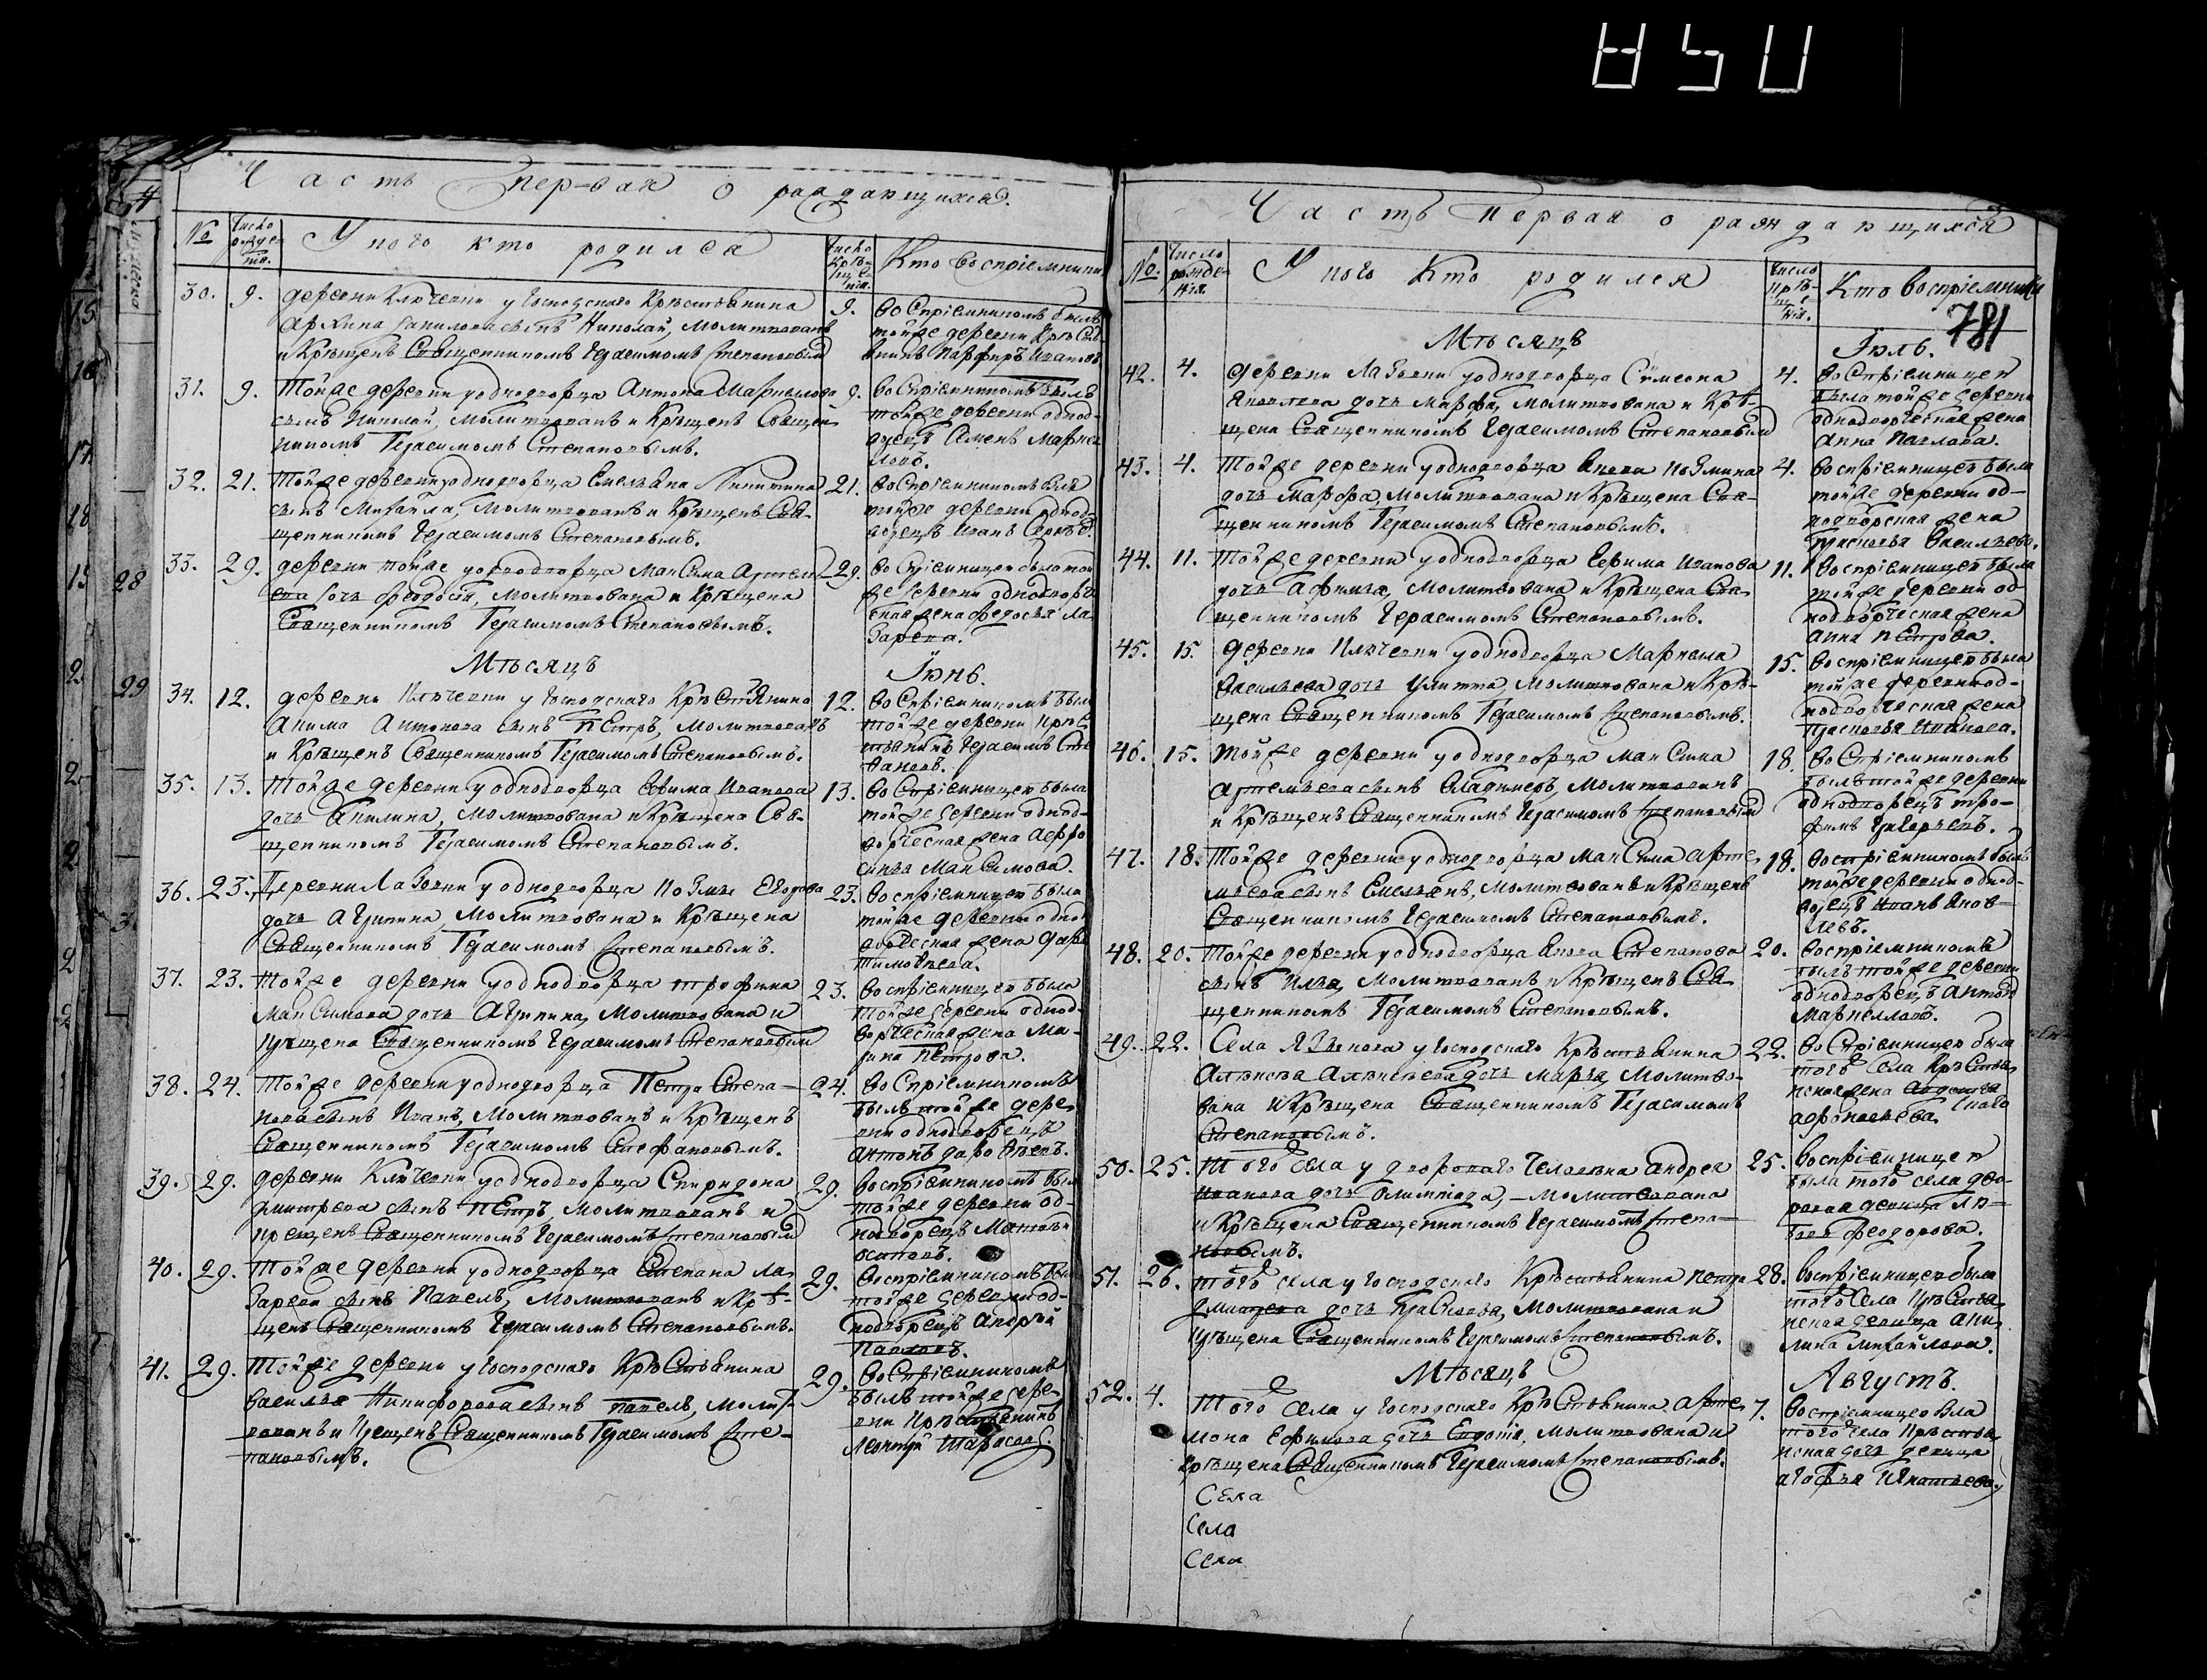 Часть первая о раждающихся.
№
Число рожде-
нія.
У ково кто родился
Число
крѣ-
ще-
нія.
Кто воспріемники
30. 9. деревни Ключевки у господскаго крѣстьянина
Архипа Данилова сынъ Николай, молитвованъ
и крѣщенъ Священникомъ Герасимомъ Степановымъ
9. воспріемникомъ былъ
тойже деревни крѣсть
янинъ Парфиръ Ивановъ
31. 9. Тойже деревни у однодворца Антона Маркелова
сынъ Николай, молитвованъ и крѣщенъ Священ-
никомъ Герасимомъ Степановымъ.
9. воспріемникомъ былъ
тойже деревни однод-
ворецъ Семенъ Марке
ловъ.
32. 21. Тойже деревни у однодворца Емельяна Никитина
сынъ Михаила, молитвованъ и крѣщенъ Свя-
щенникомъ Герасимомъ Степановымъ.
21. воспріемникомъ былъ
тойже деревни однод-
ворецъ Иванъ
33. 29. деревни тойже у однодворца Максима Артем-
ева дочь Феодосія, молитвована и крѣщена
Священникомъ Герасимомъ Степановымъ.
29. воспріемницею была той
же деревни однодвор
ская жена Федосья Ла
зарева.
Мѣсяцъ Іюнь.
34. 12. деревни Ключевки у господскаго крѣстьянина
Акима Антонова сынъ Петръ, молитвованъ
и крѣщенъ Священникомъ Герасимомъ Степановымъ.
12. воспріемникомъ былъ
тойже деревни крѣс
тьянинъ Герасимъ Сте
пановъ.
35. 13. Тойже деревни у однодворца Ефима Иванова
дочь Акилина, молитвована и крѣщена Свя-
щенникомъ Герасимомъ Степановымъ.
13. воспріемницею была
тойже деревни однод-
ворческая жена Афро
синья Максимова.
36. 23. Деревни Лазовки у однодворца Козмы Егорова
дочь Агрипина, молитвована и крѣщена
Священникомъ Герасимомъ Степановымъ.
23. воспріемницею была
тойже деревни однод
ворческая жена Дарь
Тимофѣева.
37. 23. Тойже деревни у однодворца Трофима
Максимова дочь Агрипина, молитвована и
крѣщена Священникомъ Герасимомъ Степановымъ
23. воспріемницею была
тойже деревни однод-
ворческая жена Ма-
рина Петрова.
38. 24. Тойже деревни у однодворца Петра Степа-
нова сынъ Иванъ, молитвованъ и крѣщенъ
Священникомъ Герасимомъ Стефановымъ.
24. воспріемникомъ
былъ тойже дере-
вни однодворецъ
Антонъ Дорофѣевъ.
39. 29. деревни Ключевки у однодворца Спиридона
Дмитрева сынъ Петръ, молитвованъ и
крещенъ Священникомъ Герасимомъ Степановымъ
29. воспріемникомъ был
тойже деревни од-
нодворецъ Матвѣй
Осиповъ.
40. 29. Тойже деревни у однодворца Степана Ла-
зарева сынъ Павелъ, молитвованъ и крѣ-
щенъ Священникомъ Герасимомъ Степановымъ.
29. воспріемникомъ был
тойже деревни од-
нодворецъ Андрей
Павловъ.
41. 29. Тойже деревни у господскаго крѣстьянина
Василья Никифорова сынъ Павелъ, молит-
вованъ и крещенъ Священникомъ Герасимомъ Сте-
пановымъ.
29. воспріемникомъ
былъ тойже дере-
вни крѣстьянинъ
Леонтій Тарасовъ
Часть первая о раждающихся
№.
Число
рожде-
нія.
У ково кто родился
Число
крѣ-
ще-
нія.
Кто воспріемники
781
Мѣсяцъ Іюль.
42. 4. деревни Лазовки у однодворца Сѵмеона
Яковлева дочь Марфа, молитвована и крѣ-
щена Священникомъ Герасимомъ Степановымъ
4. воспріемницею
была тойже деревни
однодворческая жена
Анна Павлова.
43. 4. Тойже деревни у однодворца Якова Козмина
дочь Марфа, молитвована и крѣщена Свя-
щенникомъ Герасимомъ Степановымъ.
4. воспріемницею была
тойже деревни од-
нодворская жена
Прасковья Васильева.
44. 11. Тойже деревни у однодворца Ефима Иванова
дочь Афимья, молитвована и крѣщена Свя-
щенникомъ Герасимомъ Степановымъ.
11. воспріемницею была
тойже деревни од-
нодворческая жена
Анна Петрова.
45. 15. деревни Ключевки у однодворца Маркела
Васильева дочь Улитта, молитвована и крѣ-
щена Священникомъ Герасимомъ Степановымъ.
15. воспріемницею была
тойже деревни од-
нодворческая жена
Прасковья Иванова.
46. 15. Тойже деревни у однодворца Максима
Артемьева сынъ Владимеръ, молитвованъ
и крѣщенъ Священникомъ Герасимомъ Степановымъ
18. воспріемникомъ
былъ тойже деревни
однодворецъ Тро-
фимъ Григорьевъ.
47. 18. Тойже деревни у однодворца Максима Арте-
мьева сынъ Емельянъ, молитвованъ и крѣщенъ
Священникомъ Герасимомъ Степановымъ.
18. воспріемникомъ былъ
тойже деревни однод-
ворецъ Иванъ Яков-
левъ.
48. 20. Тойже деревни у однодворца Якова Степанова
сынъ Илья, молитвованъ и крѣщенъ Свя-
щенникомъ Герасимомъ Степановымъ.
20. воспріемникомъ
былъ тойже деревни
однодворецъ Антонъ
Маркелловъ.
49. 22. Села Языкова у господскаго крѣстьянина
Алѣксѣя Алѣксѣева дочь Марья, молитво-
вана и крѣщена Священникомъ Герасимомъ
Степановымъ.
22. воспріемницею была
тогожъ села крѣстья-
нская жена Авдотья
Афонасьева.
50. 25. Того села у двороваго человѣка Андрея
Иванова дочь Олимпіада, молитвована
и крѣщена Священникомъ Герасимомъ Степа-
новымъ.
25. воспріемницею
была того села дво-
ровая девица Лю-
бовь Феодорова.
51. 26. того села у господскаго крѣстьянина Петра
Дмитрева дочь Прасковья, молитвована и
крѣщена Священникомъ Герасимомъ Степановымъ.
28. воспріемницею была
того села крѣстья-
нская девица Аки-
лина Михайлова.
Мѣсяцъ Августъ.
52. 4. Того села у господскаго крѣстьянина Арте-
мона Ефимова дочь Евдокія, молитвована и
крѣщена Священникомъ Герасимомъ Степановымъ.
7. воспріемницею была
того села крѣстья-
нская дочь девица
Агафья Игнатьева,
Села
Села
Села